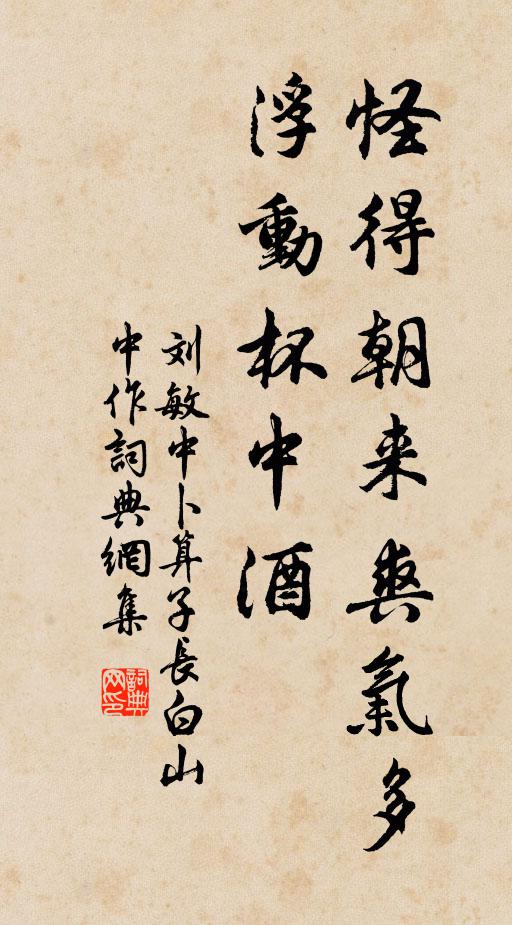 怪得朝来爽氣多
浮動杯中酒
刘敏中卜算子長白山
中作詞典網集
詞典网印